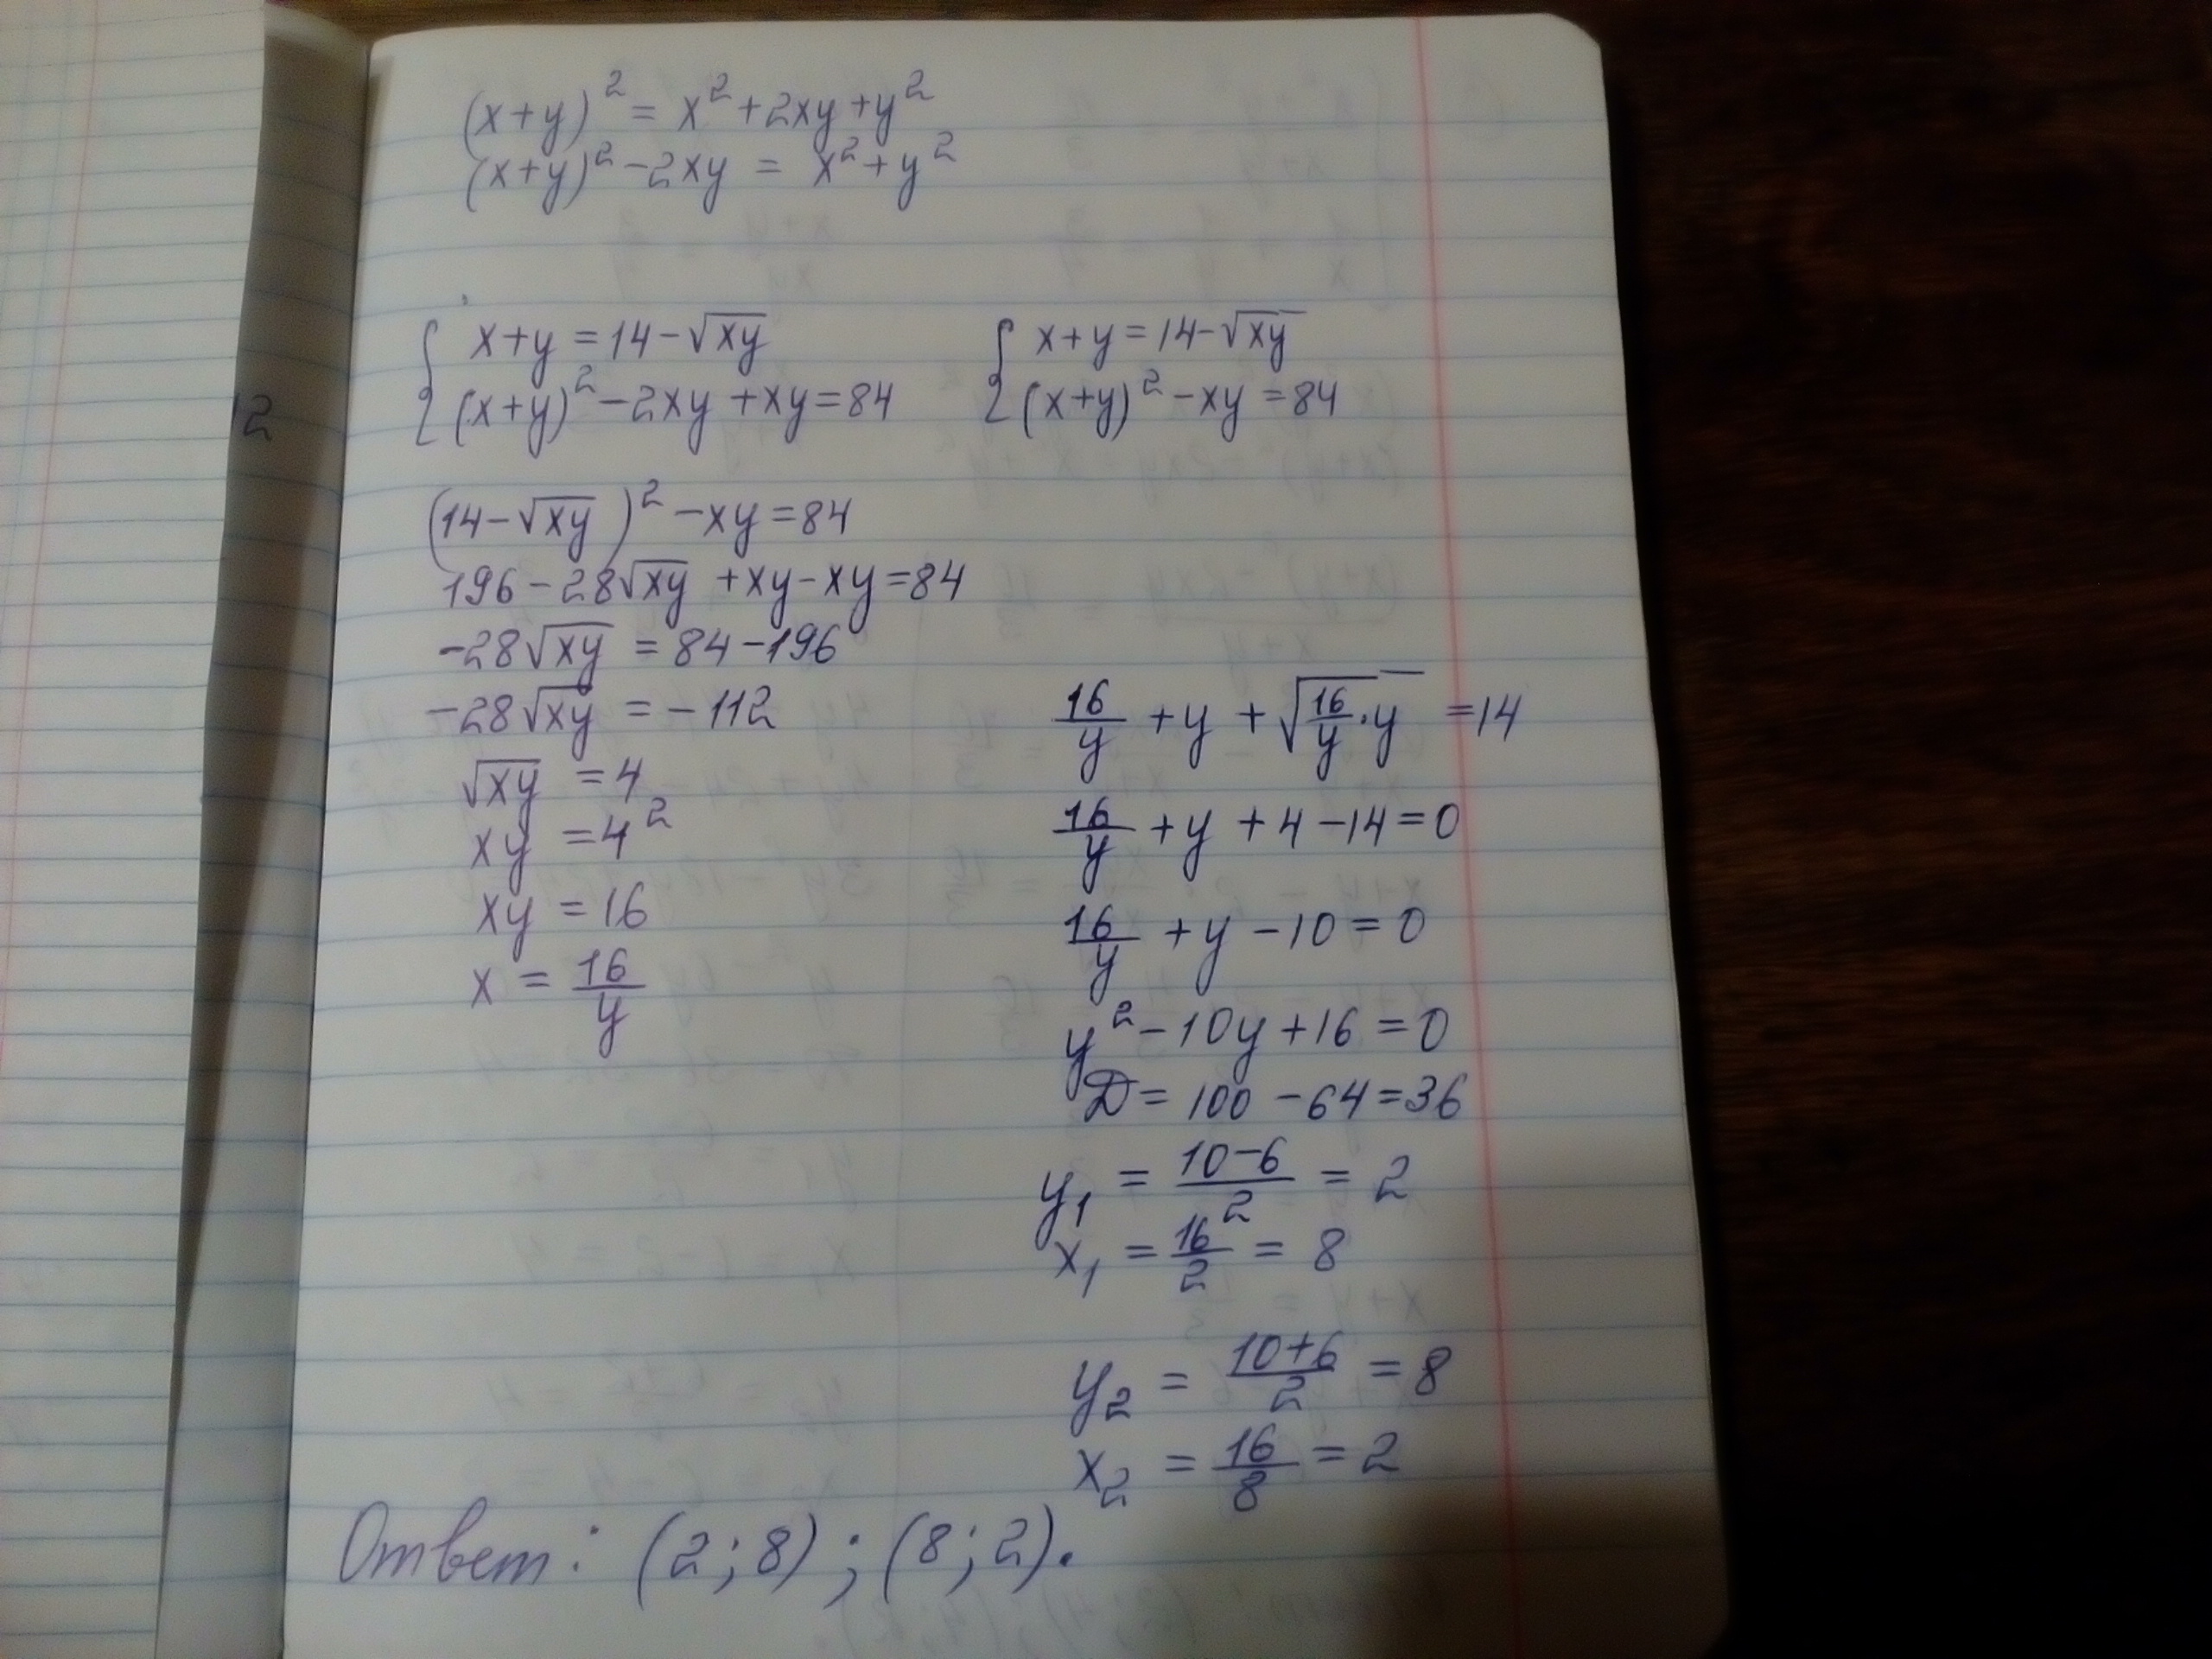 (x+y)² = x²+2xy+y²
(x+y)²-2xy = x²+y²
{ x+y=14-√xy
(x+y)²-2xy+xy=84
{ x+y=14-√xy
(x+y)²-xy=84
12
(14-√xy)²-xy=84
196-28√xy+xy-xy=84
-28√xy=84-196
-28√xy=-112
√xy=4
xy=4²
xy=16
x=16/y
16/y+y+√(16/y·y)=14
16/y+y+4-14=0
16/y+y-10=0
y²-10y+16=0
D=100-64=36
y₁=(10-6)/2=2
x₁=16/2=8
y₂=(10+6)/2=8
x₂=16/8=2
Ответ: (2;8);(8;2).